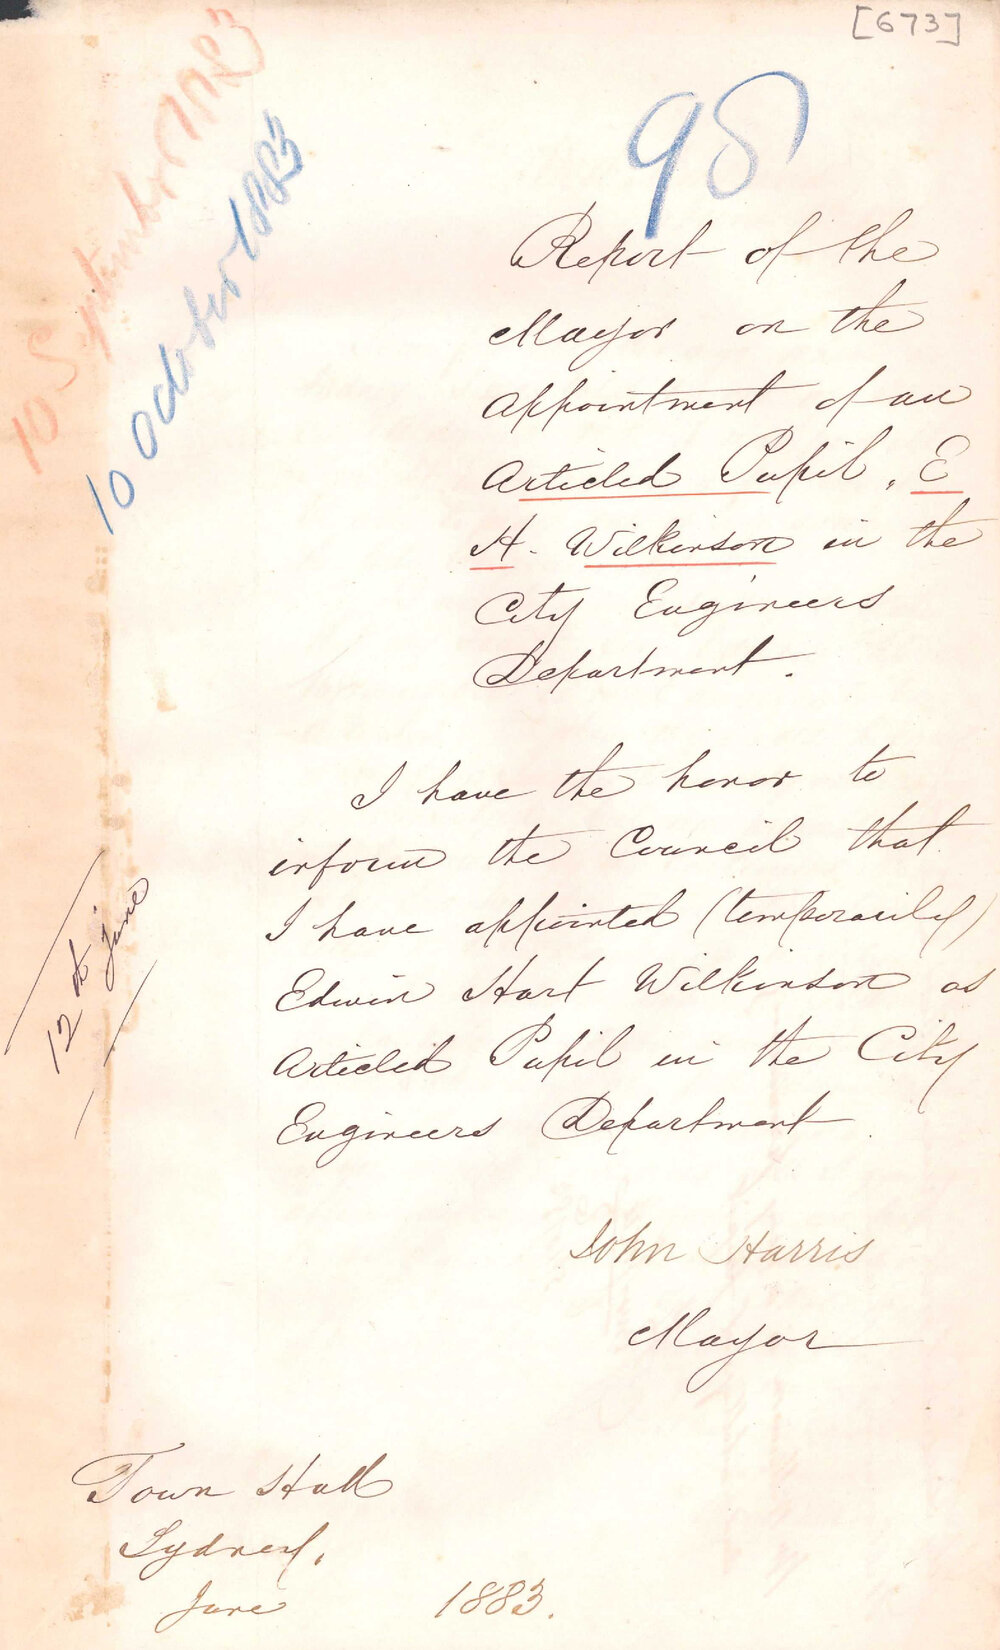 [673]
98
10 September 1883
10 October 1883
Report of the
Mayor on the
appointment of an
Articled Pupil, E
H. Wilkinson in the
City Engineers
Department.
I have the honor to
inform the Council that
I have appointed (temporarily)
Edwin Hart Wilkinson as
Articled Pupil in the City
Engineers Department
12th June
John Harris
Mayor
Town Hall
Sydney,
June 1883.